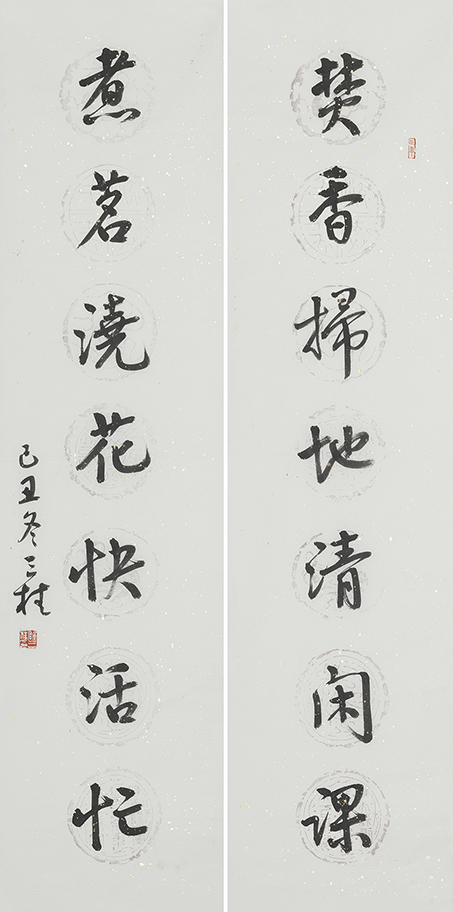 焚香掃地清闲課
煮茗澆花快活忙
己丑冬三桂